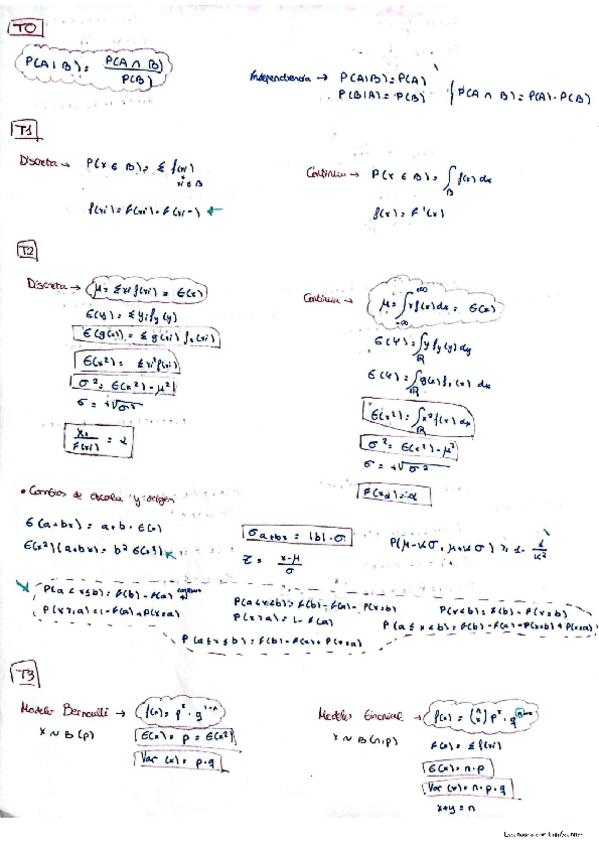 T0
P(A|B) = P(A ∩ B) / P(B)
Independencia → P(A|B) = P(A)
P(B|A) = P(B)
P(A ∩ B) = P(A) · P(B)
T1
Discreta → P(x ∈ B) = Σ f(xi)
xi ∈ B
f(xi) = F(xi) - F(xi-1) ←
Continua → P(x ∈ B) = ∫_B f(x) dx
f(x) = F'(x)
T2
Discreta → μ = Σ xi f(xi) = E(x)
E(y) = Σ yi fy (y)
E(g(x)) = Σ g(xi) fx(xi)
E(x²) = Σ xi² f(xi)
σ² = E(x²) - μ²
σ = +√σ²
= α
Continua → μ = ∫_{-∞}^{+∞} x f(x) dx = E(x)
E(Y) = ∫_ℝ y fy (y) dy
E(Y) = ∫_ℝ g(x) fx (x) dx
E(x²) = ∫_ℝ x² f(x) dx
σ² = E(x²) - μ²
σ = +√σ²
F(xα) = α
• Cambios de escala y origen
E(a+bx) = a + b · E(x)
E(x²)(a+bx) = b² E(x²) ←
σ a+bx = |b| · σ
z = x-μ / σ
P(μ-kσ, μ+kσ) ≥ 1 - 1/k²
P(a < x ≤ b) = F(b) - F(a)
P(x ≥ a) = 1 - F(a) + P(x=a)
P(a < x < b) = F(b) - F(a) - P(x=b)
P(x > a) = 1 - F(a)
P(x < b) = F(b) - P(x=b)
P(a ≤ x < b) = F(b) - F(a) - P(x=b) + P(x=a)
P(a ≤ x ≤ b) = F(b) - F(a) + P(x=a)
T3
Modelo Bernoulli → f(x) = p^x · q^{1-x}
x ~ B(p)
E(x) = p = E(x²)
Var (x) = p · q
Modelo Binomial → f(x) = (n x) p^x · q^{n-x}
x ~ B(n,p)
F(x) = Σ f(xi)
E(x) = n · p
Var (x) = n · p · q
x+y = n
Escaneado con CamScanner